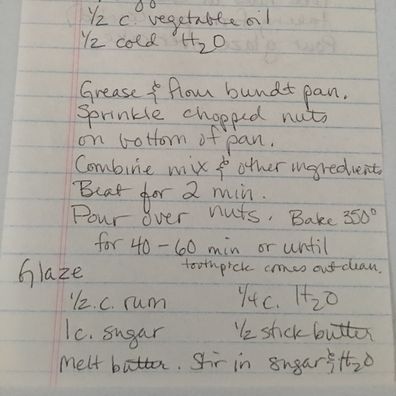 1/2 c vegetable oil
1/2 cold H2O
Grease & flour bundt pan.
Sprinkle chopped nuts
on bottom of pan.
Combine mix & other ingredients
Beat for 2 min.
Pour over nuts. Bake 350°
for 40-60 min or until
toothpick comes out clean.
Glaze
1/2 c. rum 1/4 c. H2O
1 c. sugar 1/2 stick butter
Melt butter. Stir in sugar & H2O